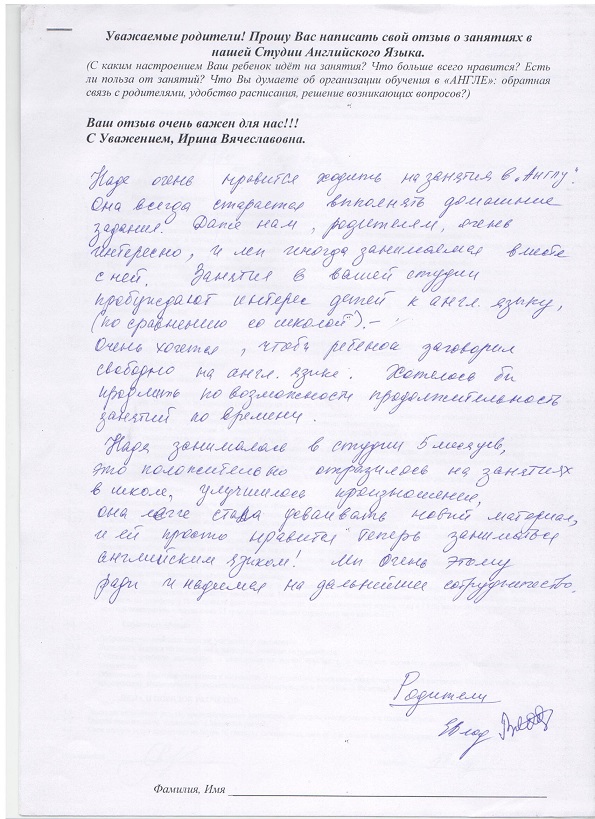 Уважаемые родители! Прошу Вас написать свой отзыв о занятиях в
нашей Студии Английского Языка.
(С каким настроением Ваш ребенок идёт на занятия? Что больше всего нравится? Есть
ли польза от занятий? Что Вы думаете об организации обучения в «АНГЛЕ»: обратная
связь с родителями, удобство расписания, решение возникающих вопросов?)
Ваш отзыв очень важен для нас!!!
С Уважением, Ирина Вячеславовна.
Наде очень нравится ходить на занятия в „Англу".
Она всегда старается выполнять домашние
задания. Даже нам, родителям, очень
интересно, и мы иногда занимаемся вместе
с ней. Занятия в вашей студии
пробуждают интерес детей к англ. языку,
(по сравнению со школой).-
Очень хочется, чтобы ребенок заговорил
свободно на англ. языке. Хотелось бы
продлить по возможности продолжительность
занятий по времени.
Надя занималась в студии 5 месяцев,
это положительно отразилось на занятиях
в школе, улучшилось произношение,
она легче стала усваивать новый материал,
и ей просто нравится теперь заниматься
английским языком! Мы очень этому
рады и надеемся на дальнейшее сотрудничество.
Родители
Фамилия, Имя